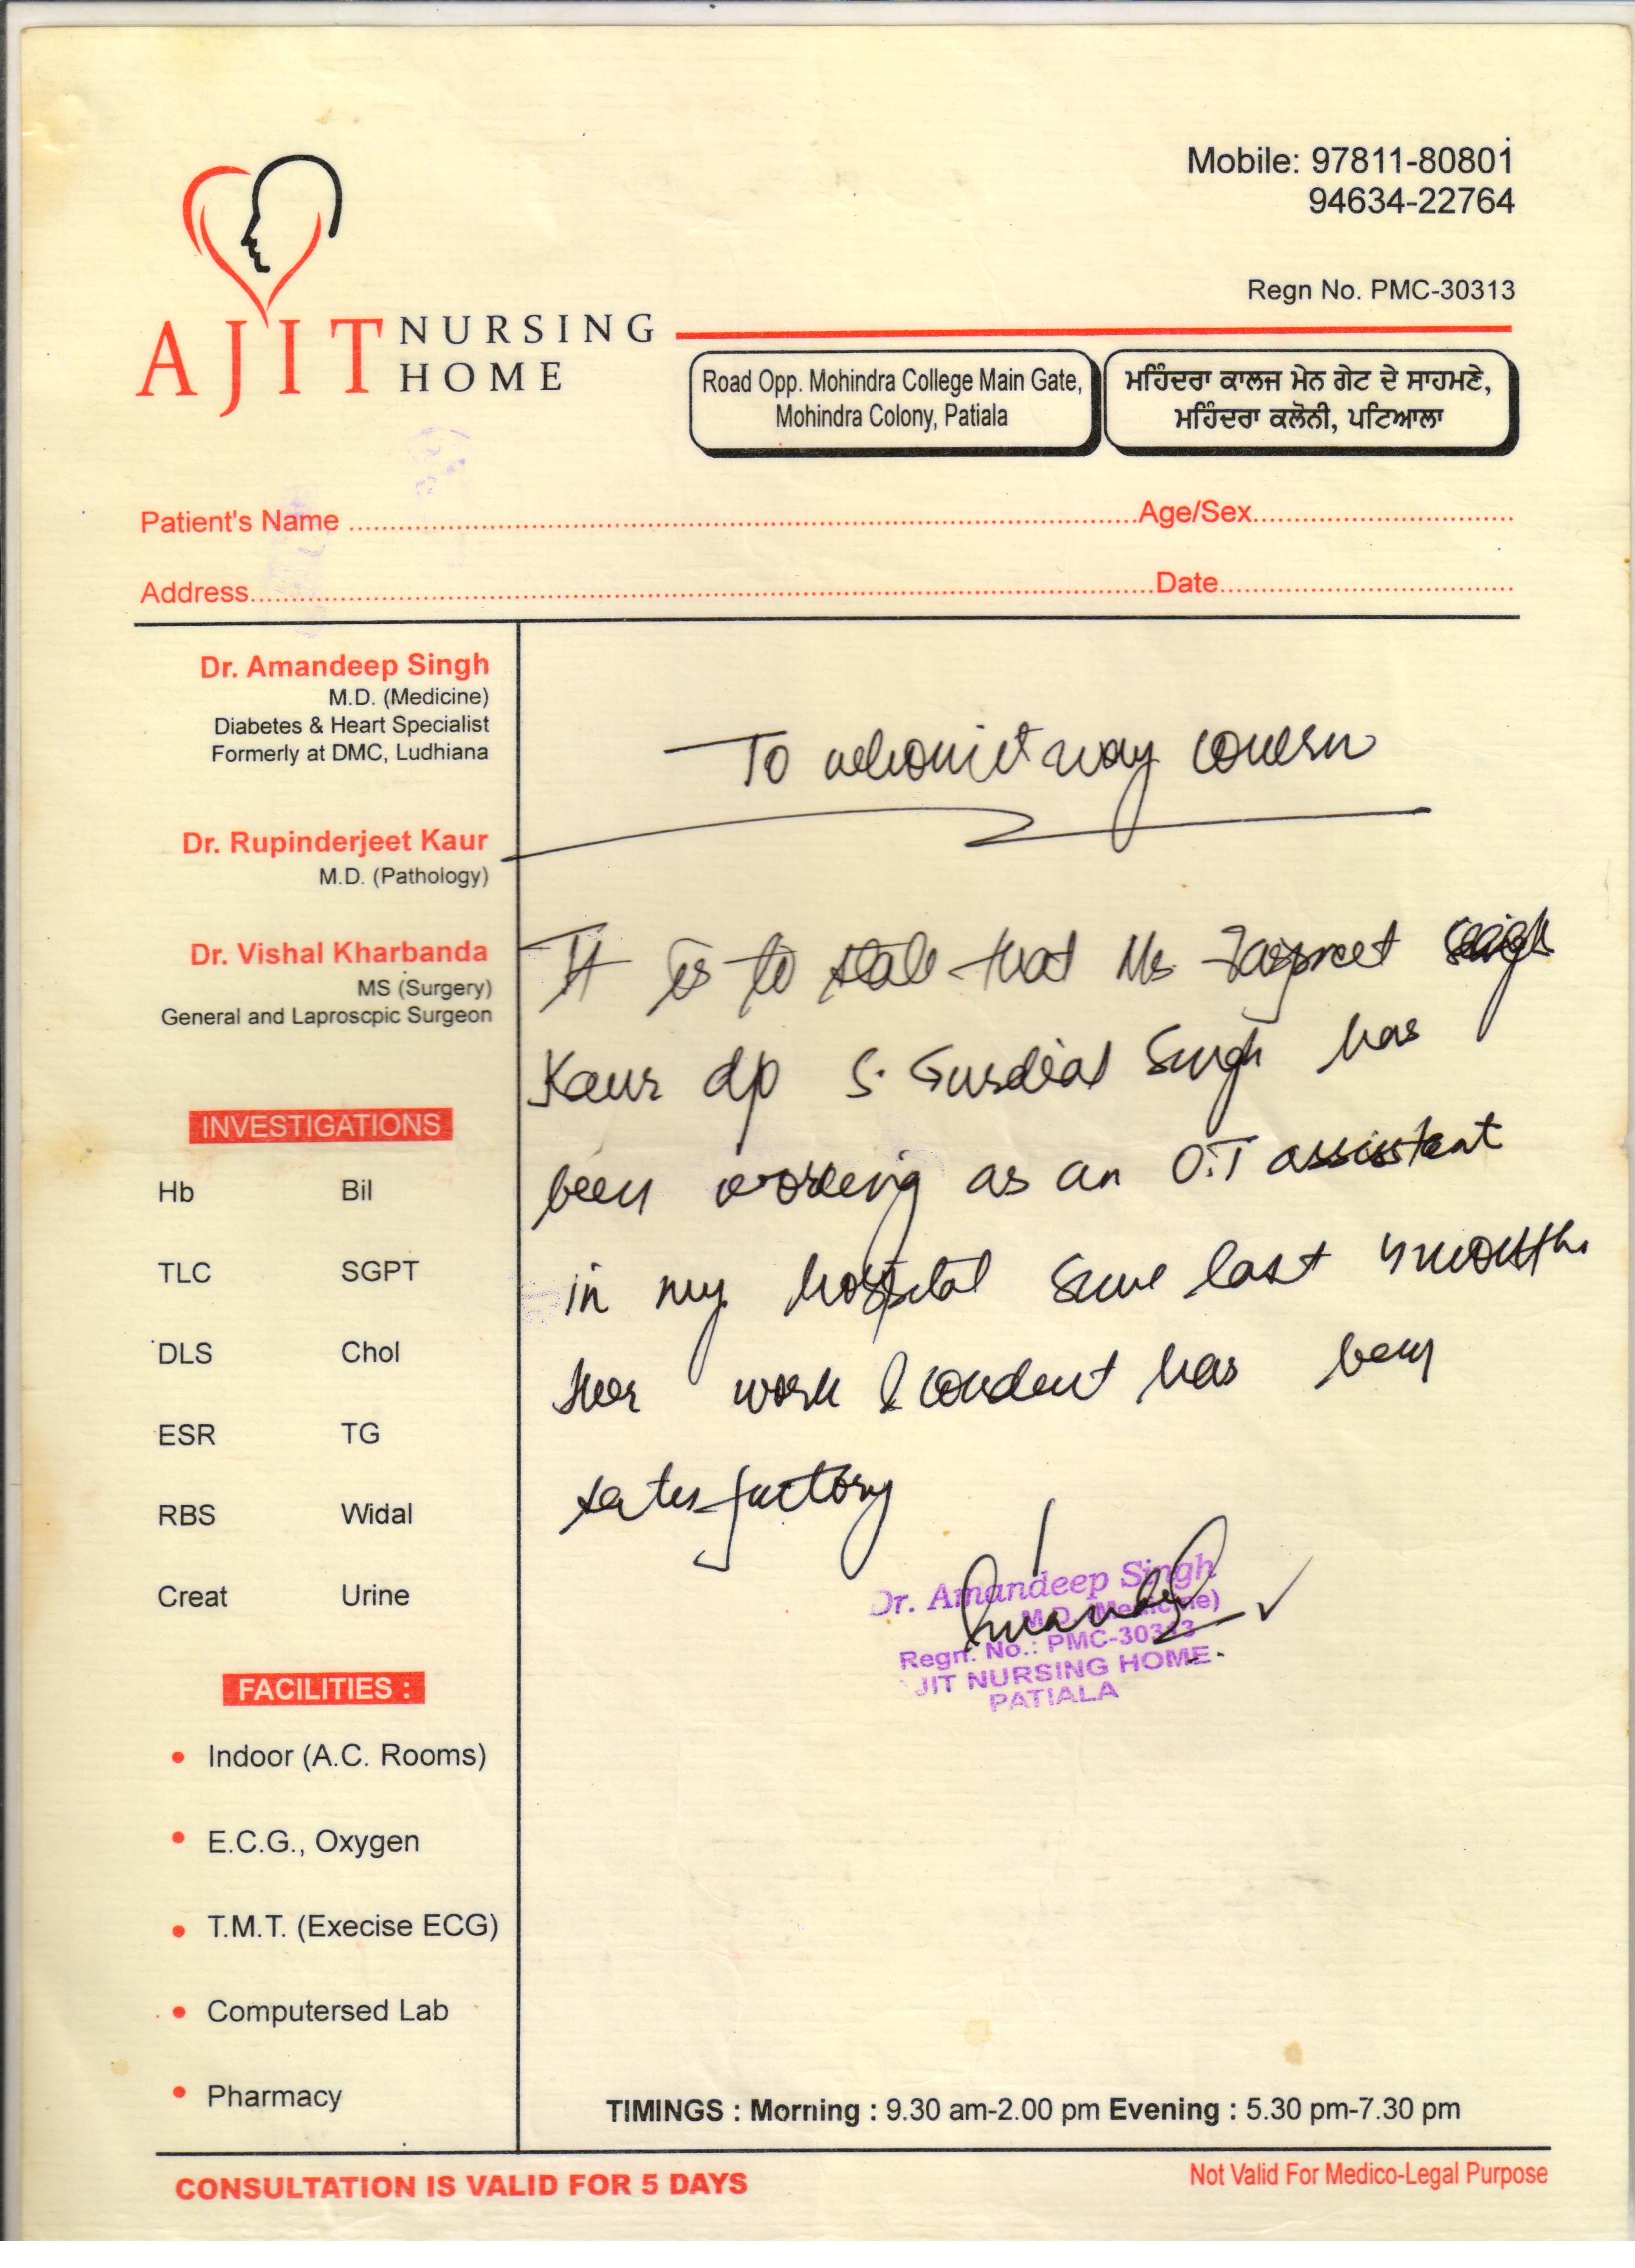 Mobile: 97811-80801
94634-22764
Regn No. PMC-30313
AJIT NURSING HOME
Road Opp. Mohindra College Main Gate,
Mohindra Colony, Patiala
ਮਹਿੰਦਰਾ ਕਾਲਜ ਮੇਨ ਗੇਟ ਦੇ ਸਾਹਮਣੇ,
ਮਹਿੰਦਰਾ ਕਲੋਨੀ, ਪਟਿਆਲਾ
Patient's Name ........ Age/Sex........
Address........ Date........
Dr. Amandeep Singh
M.D. (Medicine)
Diabetes & Heart Specialist
Formerly at DMC, Ludhiana
Dr. Rupinderjeet Kaur
M.D. (Pathology)
Dr. Vishal Kharbanda
MS (Surgery)
General and Laproscpic Surgeon
INVESTIGATIONS
Hb Bil
TLC SGPT
DLS Chol
ESR TG
RBS Widal
Creat Urine
FACILITIES :
• Indoor (A.C. Rooms)
• E.C.G., Oxygen
• T.M.T. (Execise ECG)
• Computersed Lab
• Pharmacy
To whom it may concern
It is to state that Ms
Kaur d/o S. Gurdial Singh has
been working as an O.T assistant
in my hospital since last months
Her work & conduct has been
satisfactory
Dr. Amandeep Singh
M.D. (Medicine)
Regn. No.: PMC-30313
JIT NURSING HOME
PATIALA
TIMINGS : Morning : 9.30 am-2.00 pm Evening : 5.30 pm-7.30 pm
CONSULTATION IS VALID FOR 5 DAYS
Not Valid For Medico-Legal Purpose